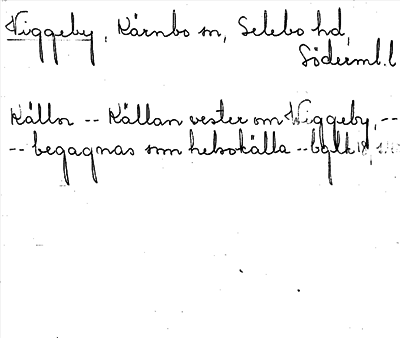 Viggeby, Kärnbo sn, Selebo hd,
Söderml. l
Källor -- Källan vester om Wiggeby, --
-- begagnas som helsokälla --